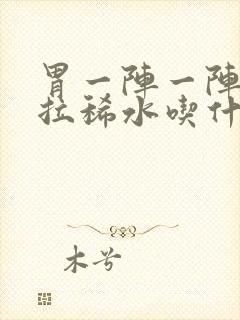 胃一陣一陣
拉稀水喫什
木兮